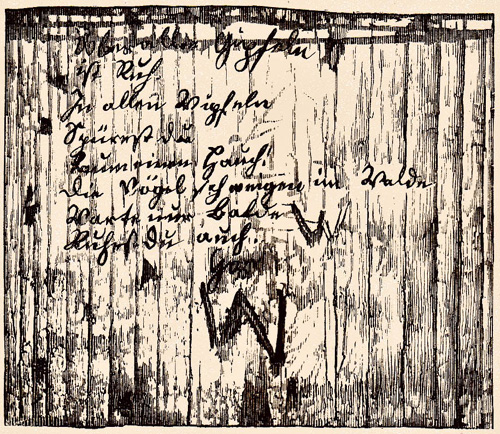 Über allen Gipfeln
ist Ruh
In allen Wipfeln
Spürest du
Kaum einen Hauch.
Die Vögel schweigen im Walde
Warte nur Balde W
Ruhest du auch.
W